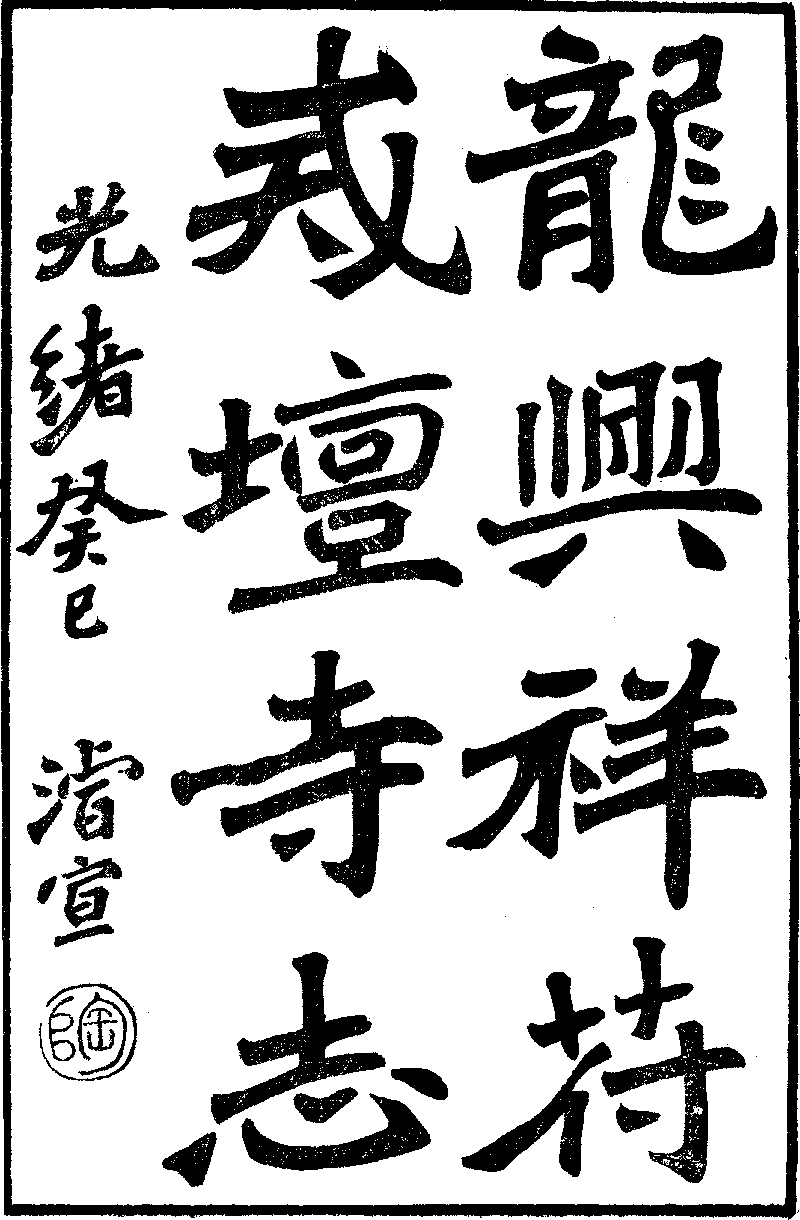 龍興祥符
戒壇寺志
光緒癸巳 濬宣
陶